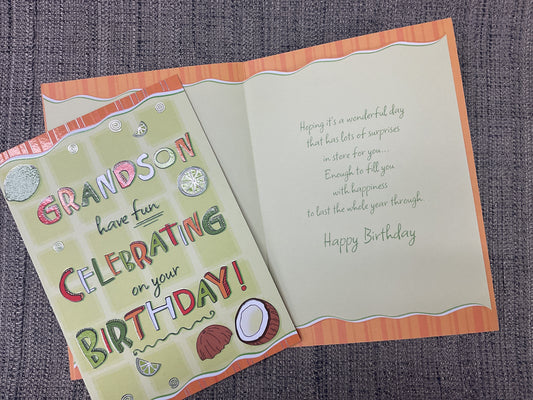 GRANDSON
have fun
CELEBRATING
on your
BIRTHDAY!
Hoping it's a wonderful day
that has lots of surprises
in store for you...
Enough to fill you
with happiness
to last the whole year through.
Happy Birthday